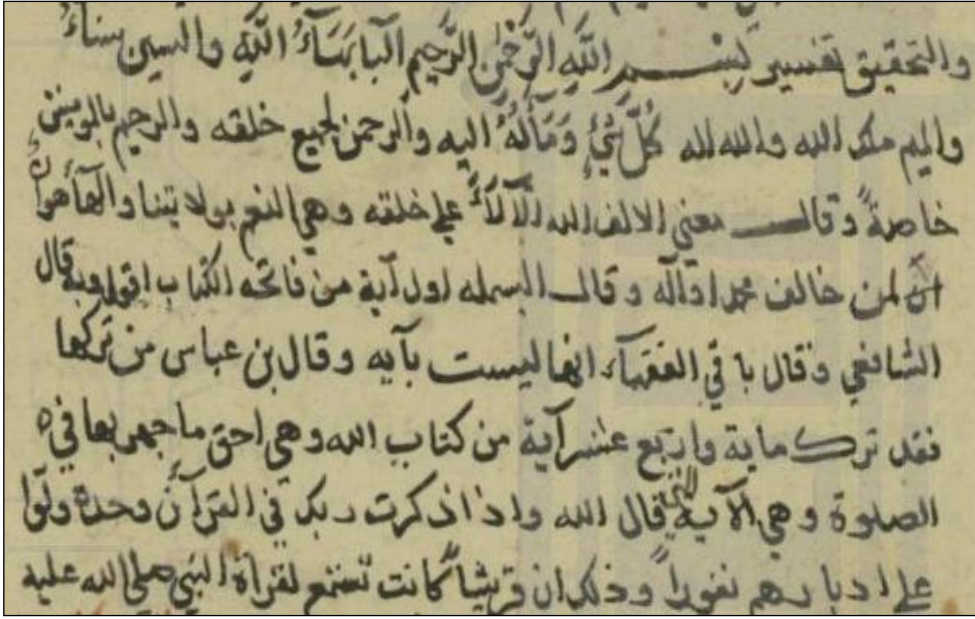 والتحقيق تفسير بِسْمِ اللَّهِ الرَّحْمٰنِ الرَّحِيمِ البا بَهَآءُ اللَّهِ والسين سناءُ
والميم ملك الله والله اله كُلِّ شَيْءٍ وَمَآلُهُ اليه والرحمن لجميع خلقه والرحيم بالمومنين
خاصةً وقال معنى الالف الله الآلآءُ على خلقه وهي النعم بولايتنا والهآ هوانٌ
لمن خالف محمدا وآله وقال البسمله اول آية من فاتحه الكتاب اقول وبه قال
الشافعي وقال باقي الفقهآء انها ليست بآيه وقال بن عباس من تركها
فقد ترك ماية واربع عشر آية من كتاب الله وهي احق ما جهر بها في
الصلوة وهي الآية التي قال الله واذا ذكرت ربك في القرآن وحده ولّوا
على ادبارهم نفوراً وذلك ان قريشاً كانت تستمع لقراة النبي صلى الله عليه